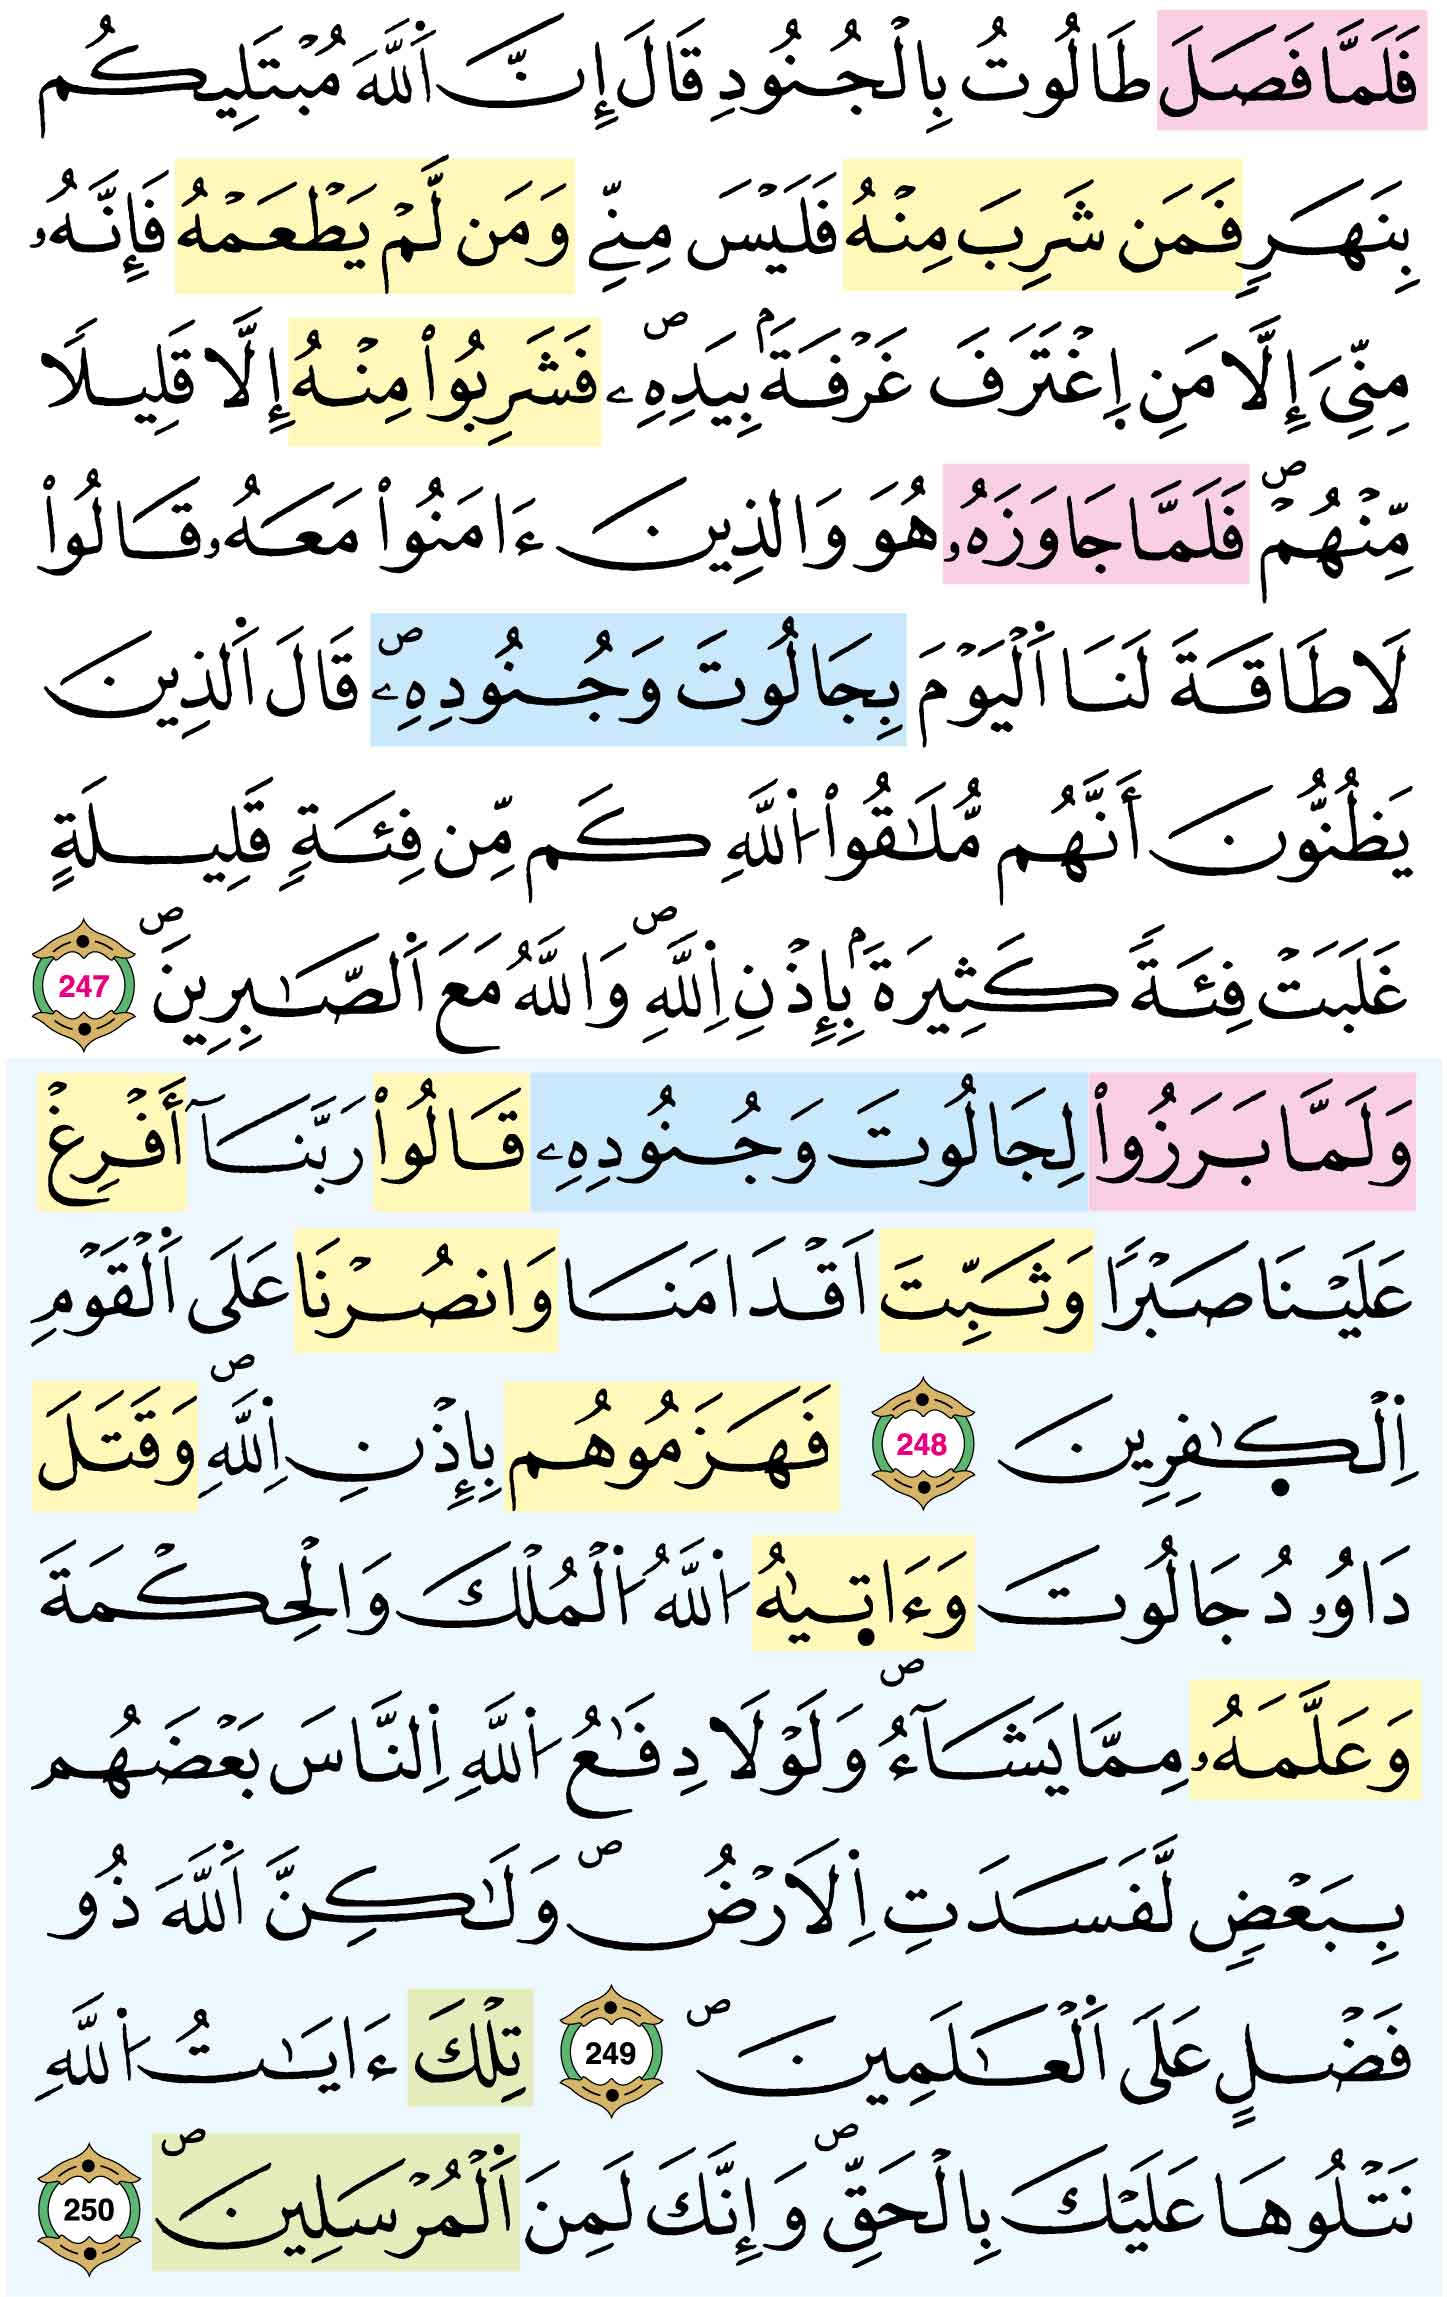 فَلَمَّا فَصَلَ طَالُوتُ بِالْجُنُودِ قَالَ إِنَّ اَ۬للَّهَ مُبْتَلِيكُم
بِنَهَرٍ فَمَن شَرِبَ مِنْهُ فَلَيْسَ مِنِّے وَمَن لَّمْ يَطْعَمْهُ فَإِنَّهُۥ
مِنِّيَ إِلَّا مَنِ اِ۪غْتَرَفَ غَرْفَةَۢ بِيَدِهِۦۖ فَشَرِبُواْ مِنْهُ إِلَّا قَلِيلًا
مِّنْهُمْۖ فَلَمَّا جَاوَزَهُۥ هُوَ وَالذِينَ ءَامَنُواْ مَعَهُۥ قَالُواْ
لَا طَاقَةَ لَنَا اَ۬لْيَوْمَ بِجَالُوتَ وَجُنُودِهِۦۖ قَالَ اَ۬لذِينَ
يَظُنُّونَ أَنَّهُم مُّلَٰقُواْ اُ۬للَّهِ كَم مِّن فِئَةٍ قَلِيلَةٍ
غَلَبَتْ فِئَةً كَثِيرَةَۢ بِإِذْنِ اِ۬للَّهِۖ وَاللَّهُ مَعَ اَ۬لصَّٰبِرِينَۖ 247
وَلَمَّا بَرَزُواْ لِجَالُوتَ وَجُنُودِهِۦ قَالُواْ رَبَّنَآ أَفْرِغْ
عَلَيْنَا صَبْرًا وَثَبِّتَ اَقْدَامَنَا وَانصُرْنَا عَلَى اَ۬لْقَوْمِ
اِ۬لْكٰ۪فِرِينَ 248 فَهَزَمُوهُم بِإِذْنِ اِ۬للَّهِۖ وَقَتَلَ
دَاوُۥدُ جَالُوتَ وَءَات۪يٰهُ اُ۬للَّهُ اُ۬لْمُلْكَ وَالْحِكْمَةَ
وَعَلَّمَهُۥ مِمَّا يَشَآءُۖ وَلَوْلَا دِفَٰعُ اُ۬للَّهِ اِ۬لنَّاسَ بَعْضَهُم
بِبَعْضٍ لَّفَسَدَتِ اِ۬لَارْضُۖ وَلَٰكِنَّ اَ۬للَّهَ ذُو
فَضْلٍ عَلَى اَ۬لْعَٰلَمِينَۖ 249 تِلْكَ ءَايَٰتُ اُ۬للَّهِ
نَتْلُوهَا عَلَيْكَ بِالْحَقِّۖ وَإِنَّكَ لَمِنَ اَ۬لْمُرْسَلِينَۖ 250